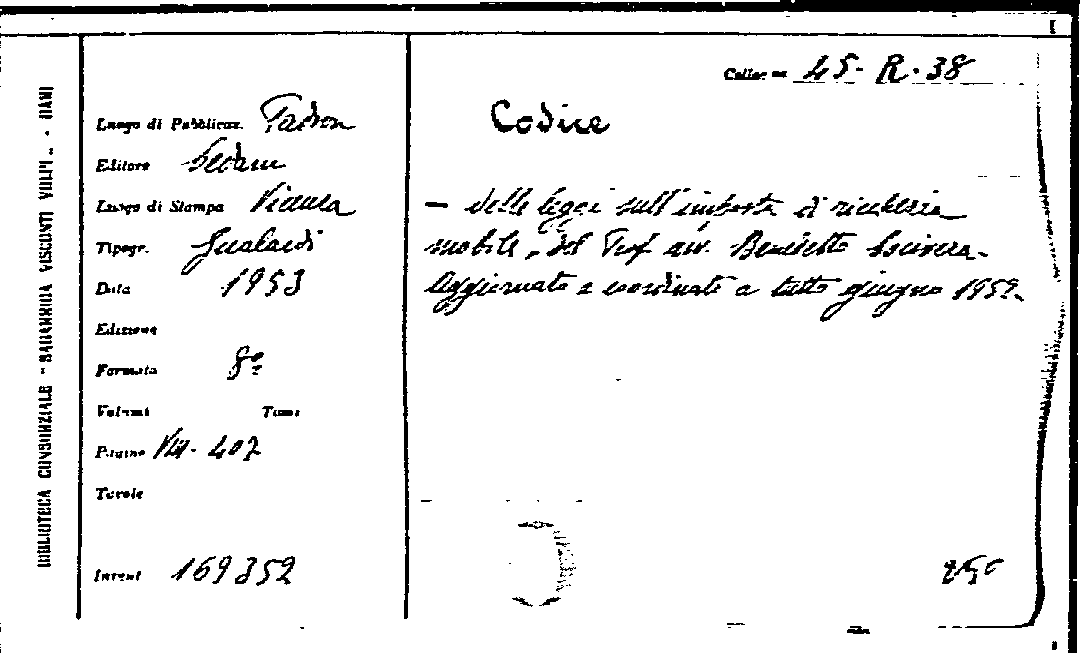 BIBLIOTECA CONSORZIALE - SAGARRIGA VISCONTI VOLPI - BARI
Collocaz. 45-R-38
Luogo di Pubblicaz. Padova
Editore Cedam
Luogo di Stampa Vicenza
Tipogr. Gualandi
Data 1953
Edizione
Formato 8º
Volumi Tomi
Pagine VIII-407
Tavole
Invent 169352
Codice
— delle leggi sull'imposta di ricchezza
mobile, del Prof avv. Benedetto
Aggiornato e coordinato a tutto giugno 1952.